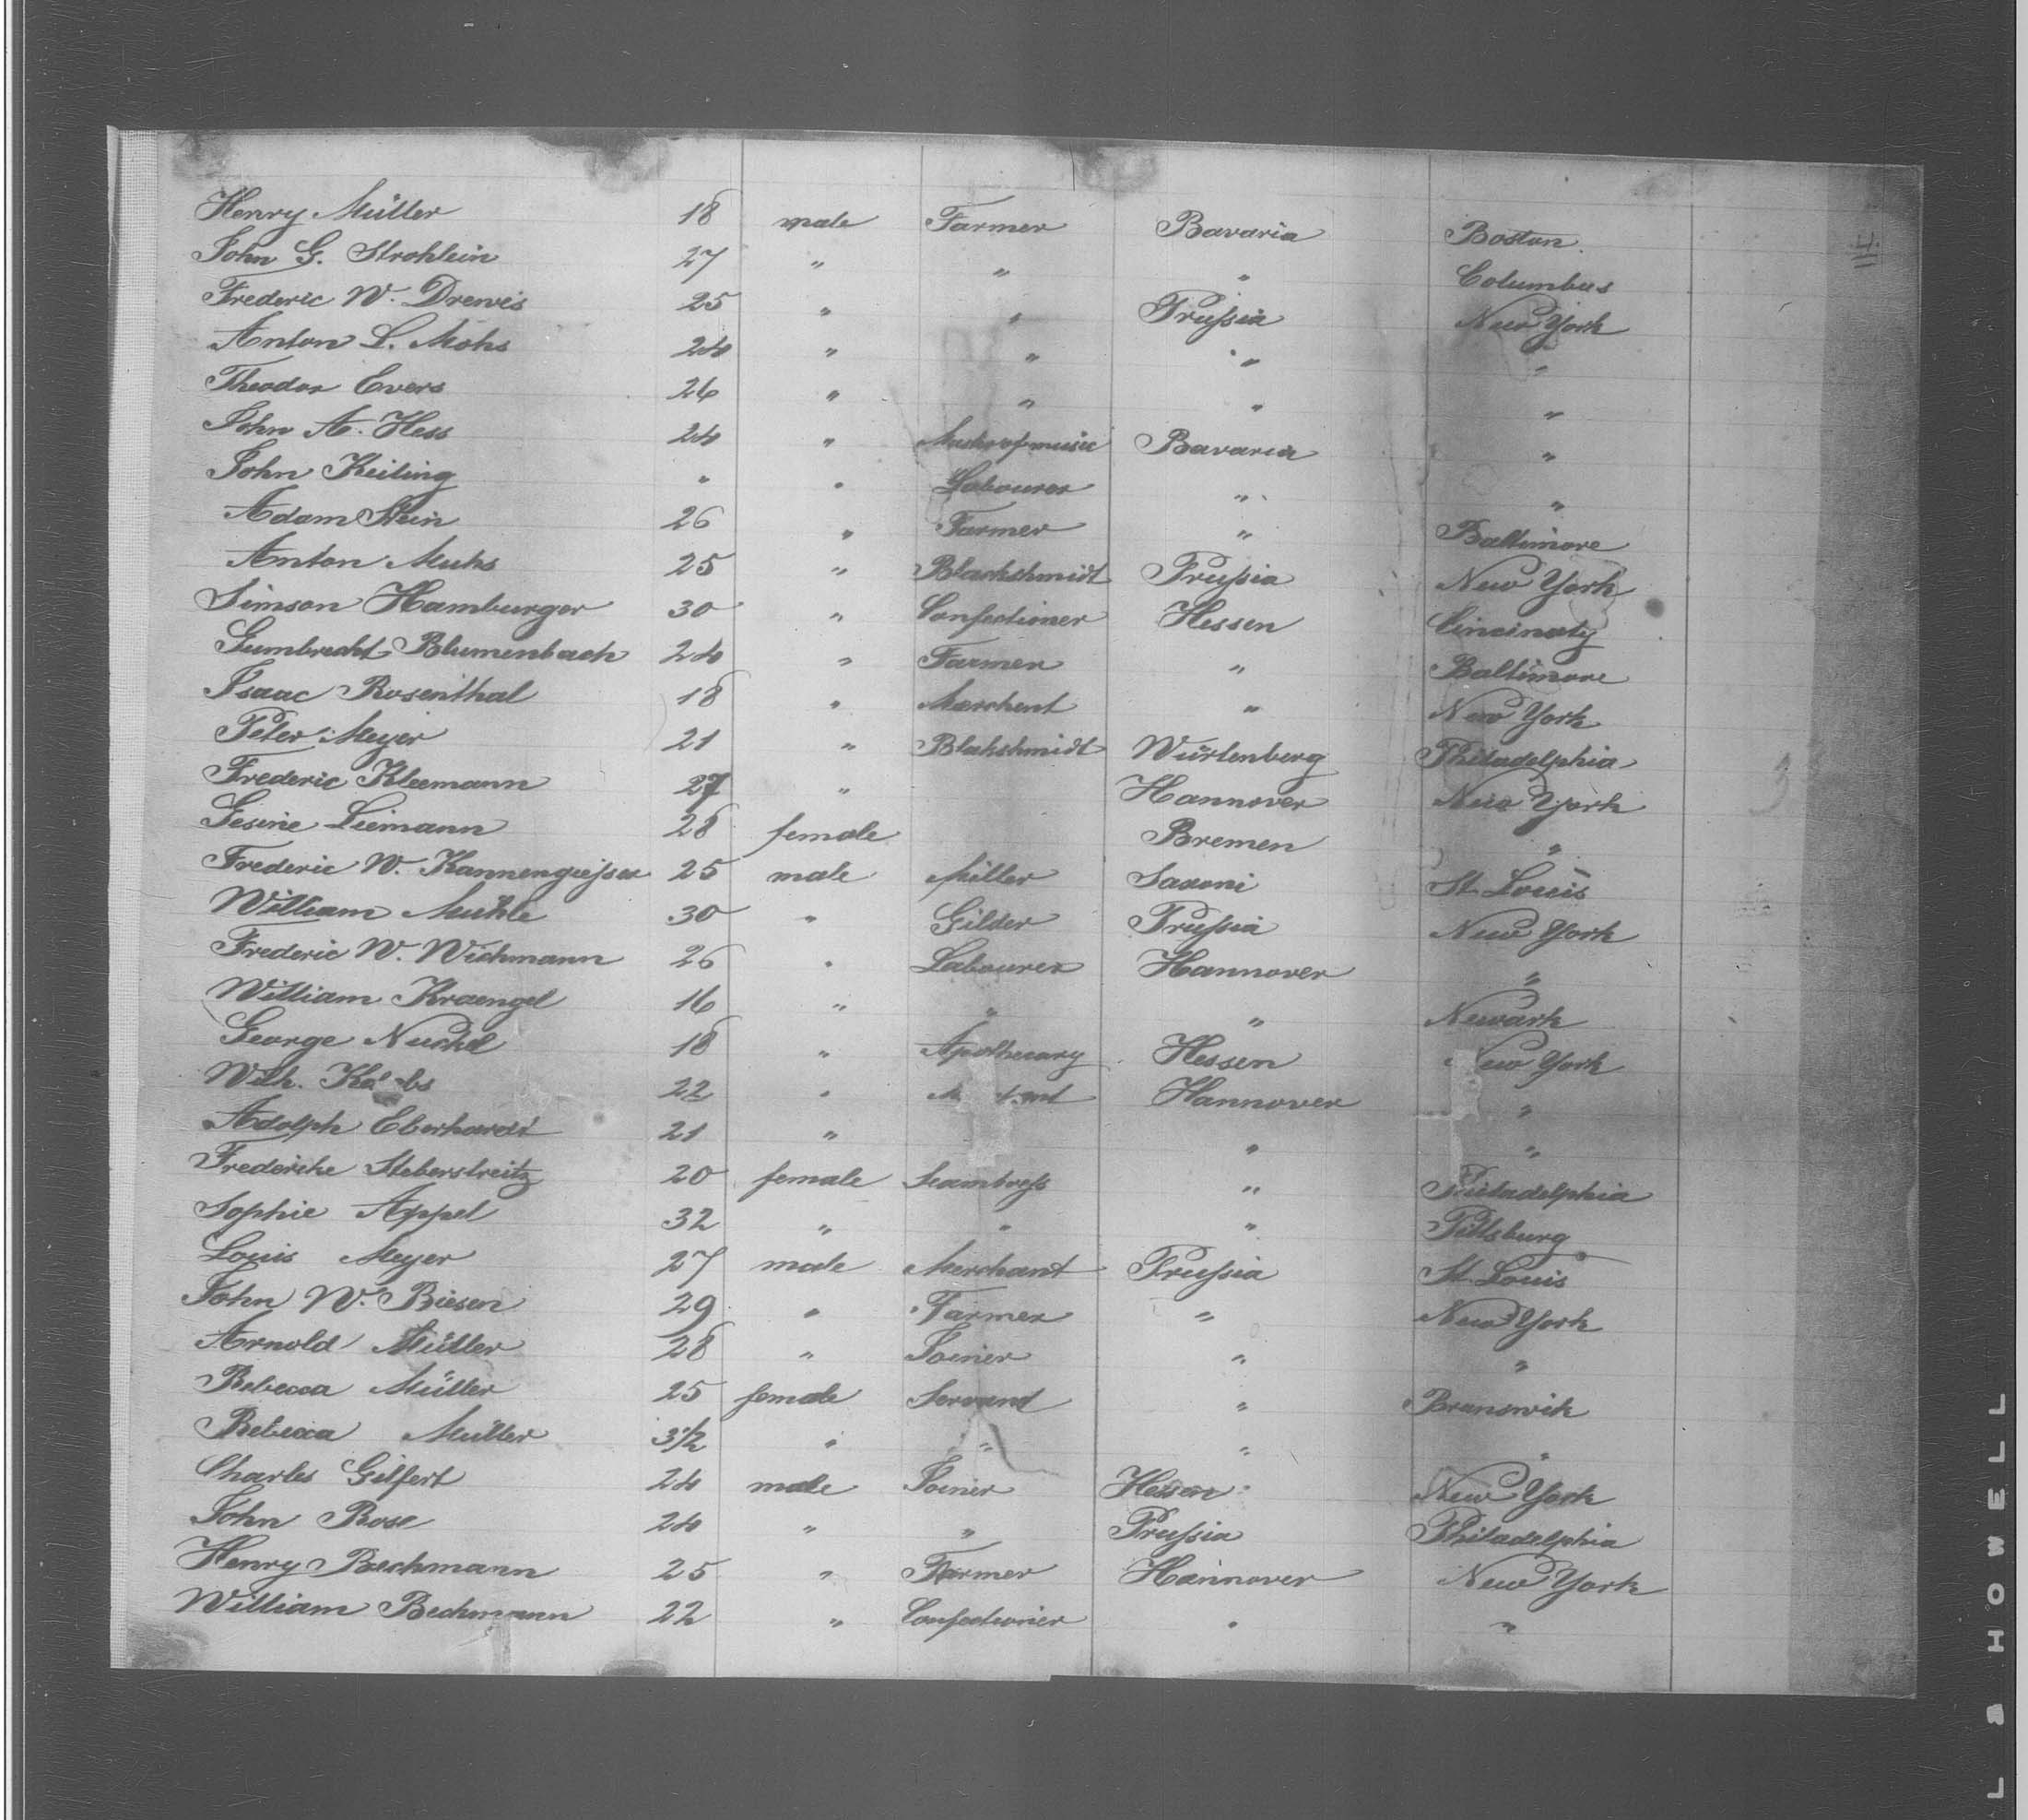 4.
Henry Müller 18 male Farmer Bavaria Boston.
John G. Strohlein 27 " " " Columbus
Frederic W. Drewes 25 " " Prussia New York
Anton L. Mohs 24 " " " "
Theodor Evers 26 " " " "
John A. Hess 24 " Bavaria "
John Keiling " " Labourer " "
Adam Stein 26 " Farmer " Baltimore
Anton Muhs 25 " Blackshmidt Prussia New York
Simson Hamburger 30 " Confectioner Hessen Cincinaty
Gumbrecht Blumenbach 24 " Farmer " Baltimore
Isaac Rosenthal 18 " Merchent " New York
Peter Meyer 21 " Blakshmidt Würtenberg Philadelphia
Frederic Kleemann 27 " Hannover New York
Gesine Liemann 28 female Bremen "
Frederic W. Kannengiesser 25 male Miller Saxoni St. Louis
William Muhle 30 " Gilder Prussia New York
Frederic W. Wichmann 26 " Labourer Hannover "
William Kraengel 16 " " " Newark
George Nuchel 18 " Apothecary Hessen New York
Wilh. 22 " Hannover "
Adolph Eberhardt 21 " " "
Frederike Steberstreitz 20 female Seamtress " Philadelphia
Sophie Appel 32 " " " Pittsburg
Louis Meyer 27 male Merchant Prussia St. Louis
John W. Biesen 29 " Farmer " New York
Arnold Müller 28 " Joiner " "
Rebecca Müller 25 female Servant " Brunswik
Rebecca Müller 3½ " " " "
Charles Gilfert 24 male Joiner Hessen New York
John Bose 24 " " Prussia Philadelphia
Henry Bechmann 25 " Farmer Hannover New York
William Bechmann 22 " Confectionier " "
L & HOWELL